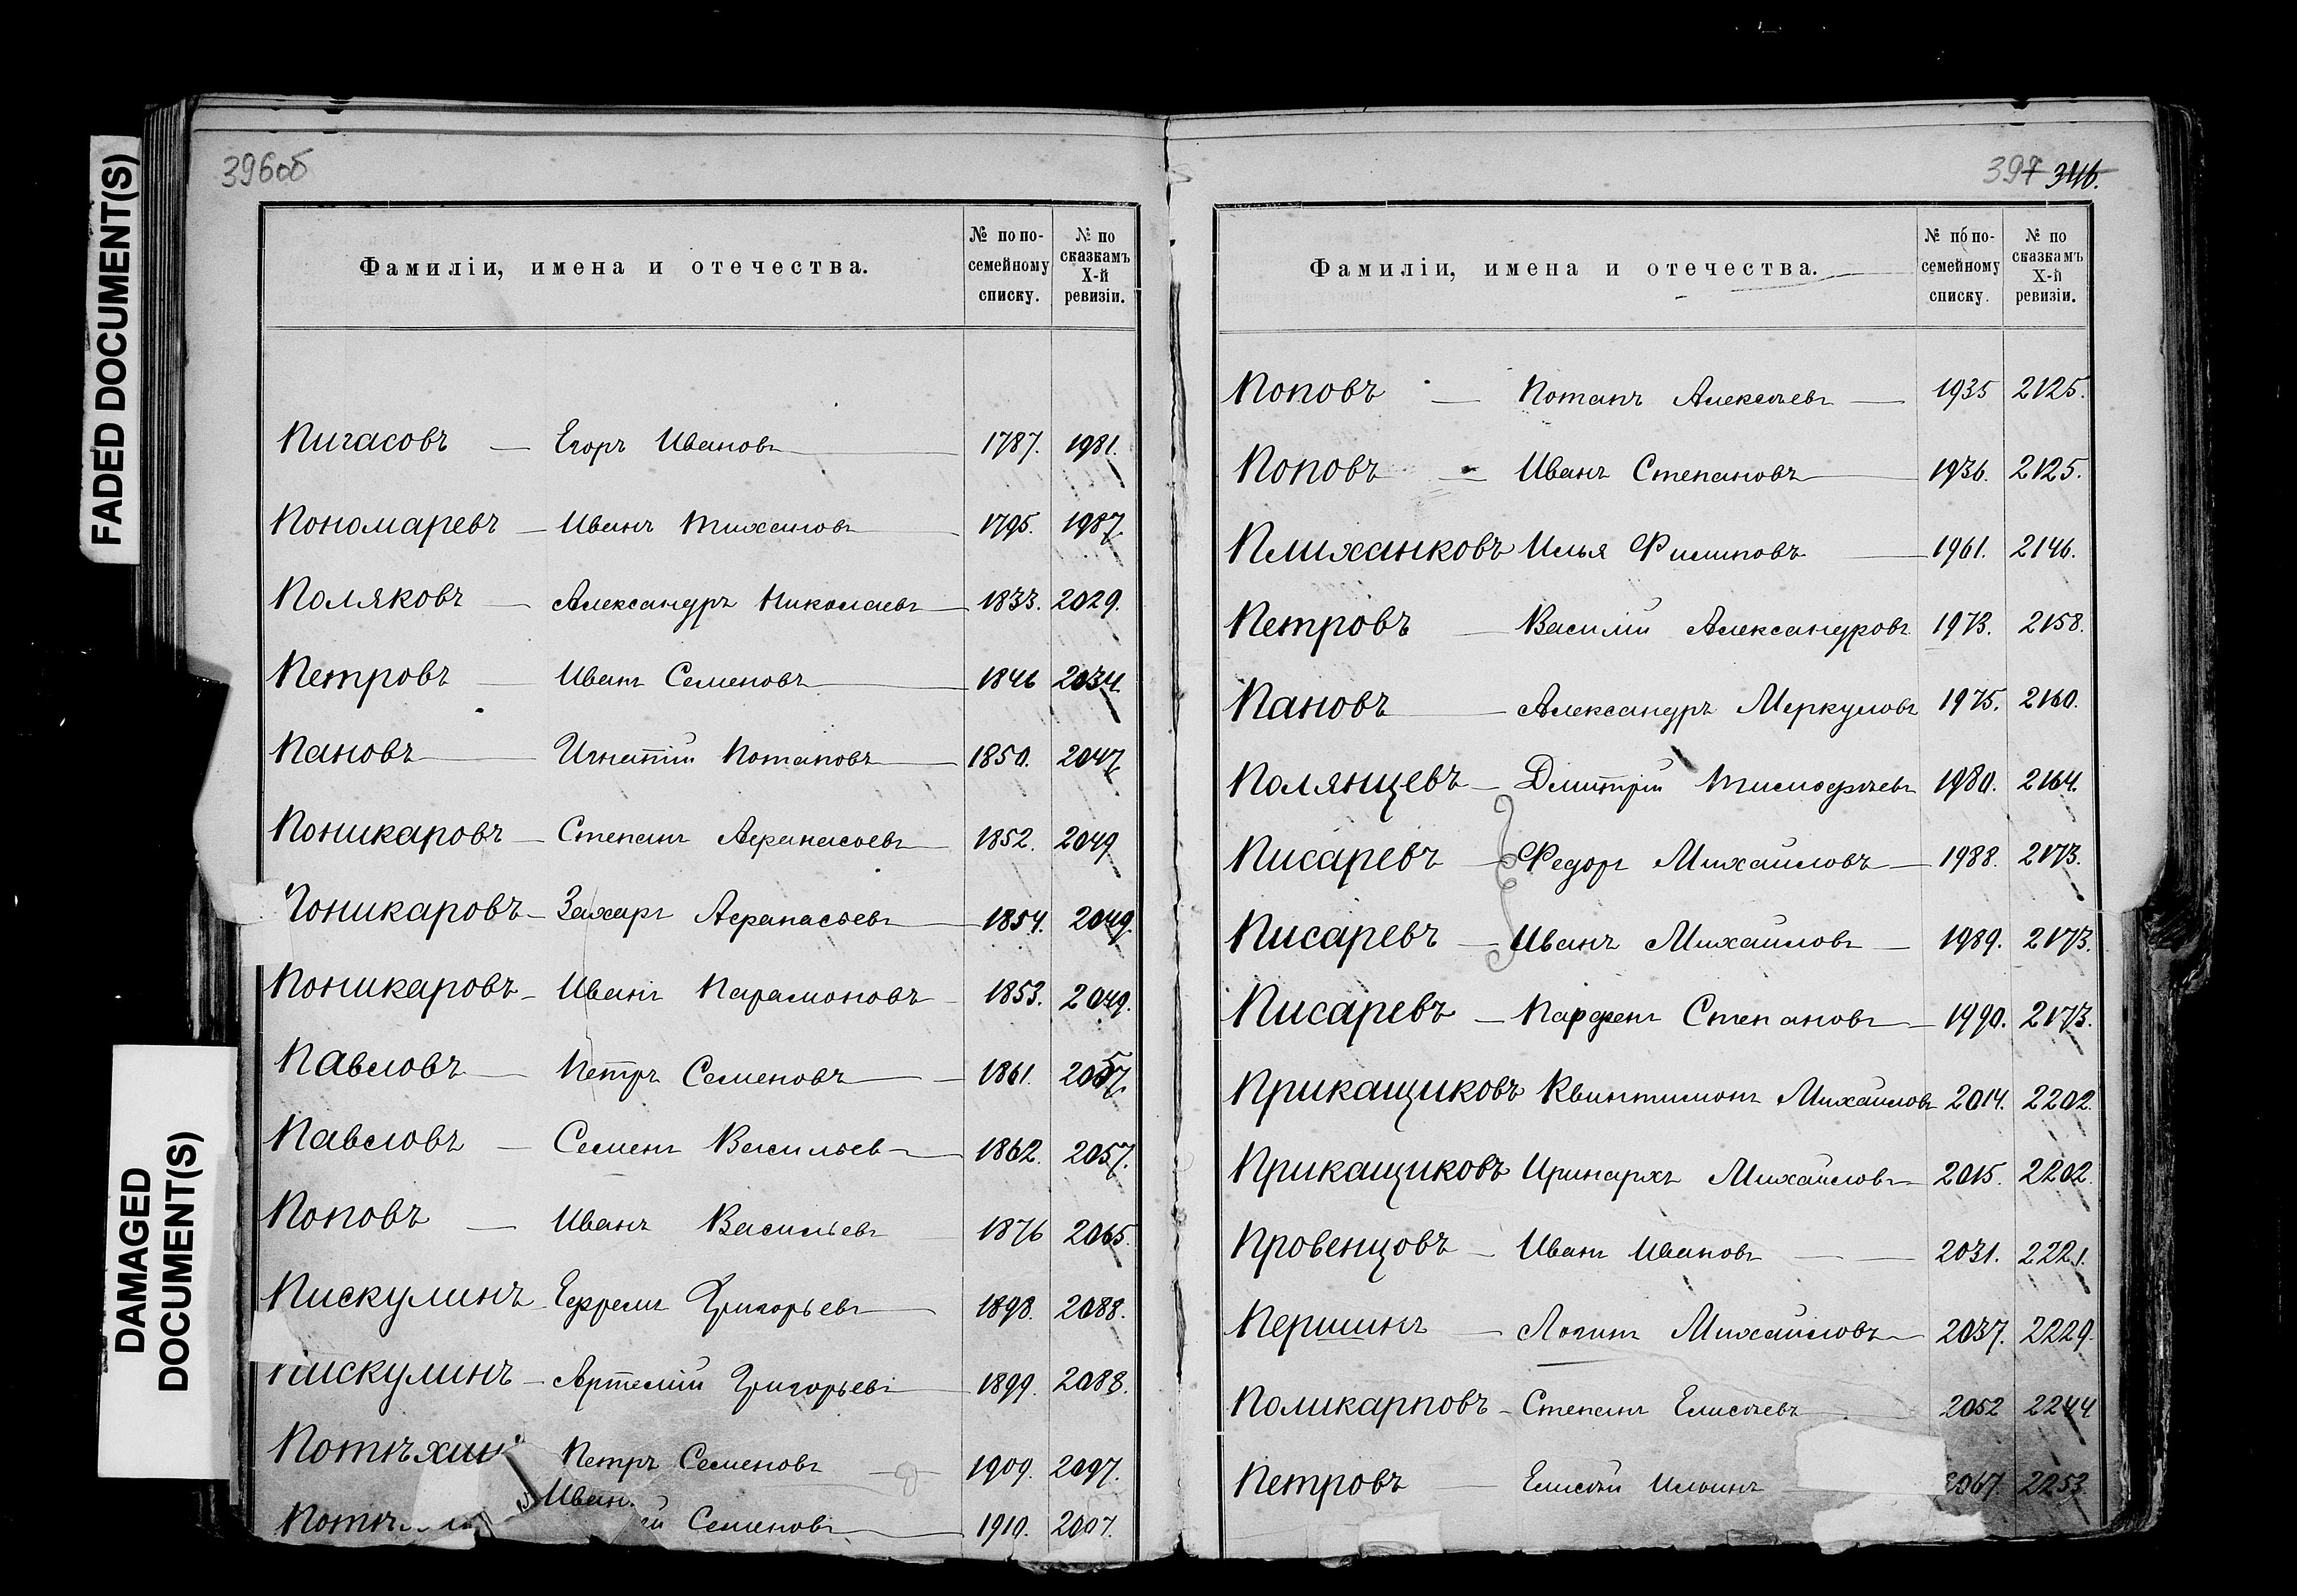 FADED DOCUMENT(S)
DAMAGED
DOCUMENT(S)
396об
Фамиліи, имена и отечества.
№ по по-
семейному
списку.
№ по
сказкамъ
X-й
ревизіи.
Пигасовъ — Егоръ Ивановъ 1787. 1981.
Пономаревъ — Иванъ Тихановъ 1795. 1987.
Поляковъ — Александръ Николаевъ 1833. 2029.
Петровъ — Иванъ Семеновъ 1846 2034.
Пановъ — Игнатій Потаповъ 1850. 2047.
Поникаровъ — Степанъ Афанасьевъ 1852. 2049
Поникаровъ — Захаръ Афанасьевъ 1854. 2049.
Поникаровъ — Иванъ Парамоновъ 1853. 2049.
Павловъ — Петръ Семеновъ 1861. 2057.
Павловъ — Семенъ Васильевъ 1862. 2057.
Поповъ — Иванъ Васильевъ 1876 2065.
Пискулинъ Ефремъ Григорьевъ 1898. 2088.
Пискулинъ — Артемій Григорьевъ 1899. 2088.
Потѣхинъ Петръ Семеновъ 1909. 2097.
Семеновъ 1910.
397 346.
Фамиліи, имена и отечества.
№ по по-
семейному
списку.
№ по
сказкамъ
X-й
ревизіи.
Поповъ — Потапъ Алексѣевъ — 1935 2125.
Поповъ — Иванъ Степановъ 1936. 2125.
Плиханковъ Илья Филиповъ 1961. 2146.
Петровъ — Василій Александровъ 1973. 2158.
Пановъ — Александръ Меркуловъ 1975. 2160.
Полянцевъ — Дмитрій Тимофѣевъ 1980. 2164.
Писаревъ — Федоръ Михайловъ — 1988. 2173.
Писаревъ — Иванъ Михайловъ — 1989. 2173.
Писаревъ — Парфенъ Степановъ — 1990. 2173.
Прикащиковъ Квинтиліонъ Михайловъ 2014. 2202.
Прикащиковъ Иринархъ Михайловъ 2015. 2202.
Провенцовъ — Иванъ Ивановъ — 2031. 2221.
Першинъ — Логинъ Михайловъ — 2037. 2229.
Поликарповъ — Степанъ Елисѣевъ 2052 2244
Петровъ — Елисѣй Ильинъ 2067 2253.